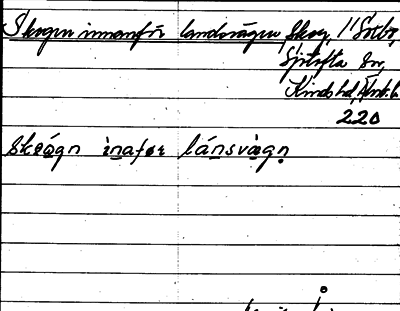 Skogen innanför landsvägen, Skog, 1' Sötbo,
Sjötofta Sn,
Kinds hd, Älvsb. l.
220
skoágn ìnafør lánsvàgn